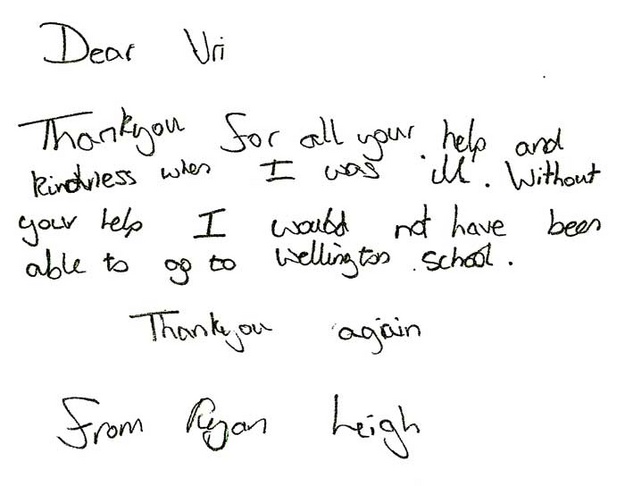 Dear Uri
Thankyou for all your help and
kindness when I was ill. Without
your help I would not have been
able to go to Wellington school.
Thankyou again
From Ryan Leigh